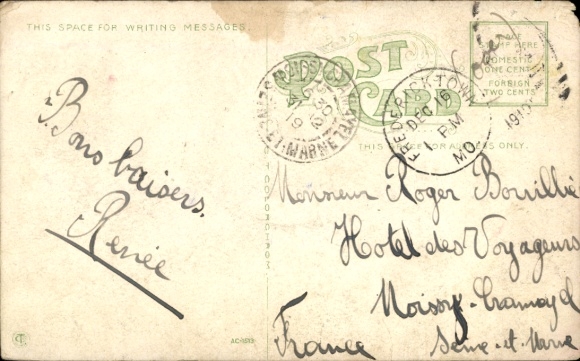 THIS SPACE FOR WRITING MESSAGES.
POST
CARD
PLACE
STAMP HERE
DOMESTIC
ONE CENT
FOREIGN
TWO CENTS
THIS SPACE FOR ADDRESS ONLY.
FREDERICKTOWN
DEC 16
PM
MO.
ET-MARNE
Bons baisers.
Renée
Monsieur Roger Bourillié
Hotel des Voyageurs
Moissy-Cramayel
Seine-et-Marne
France